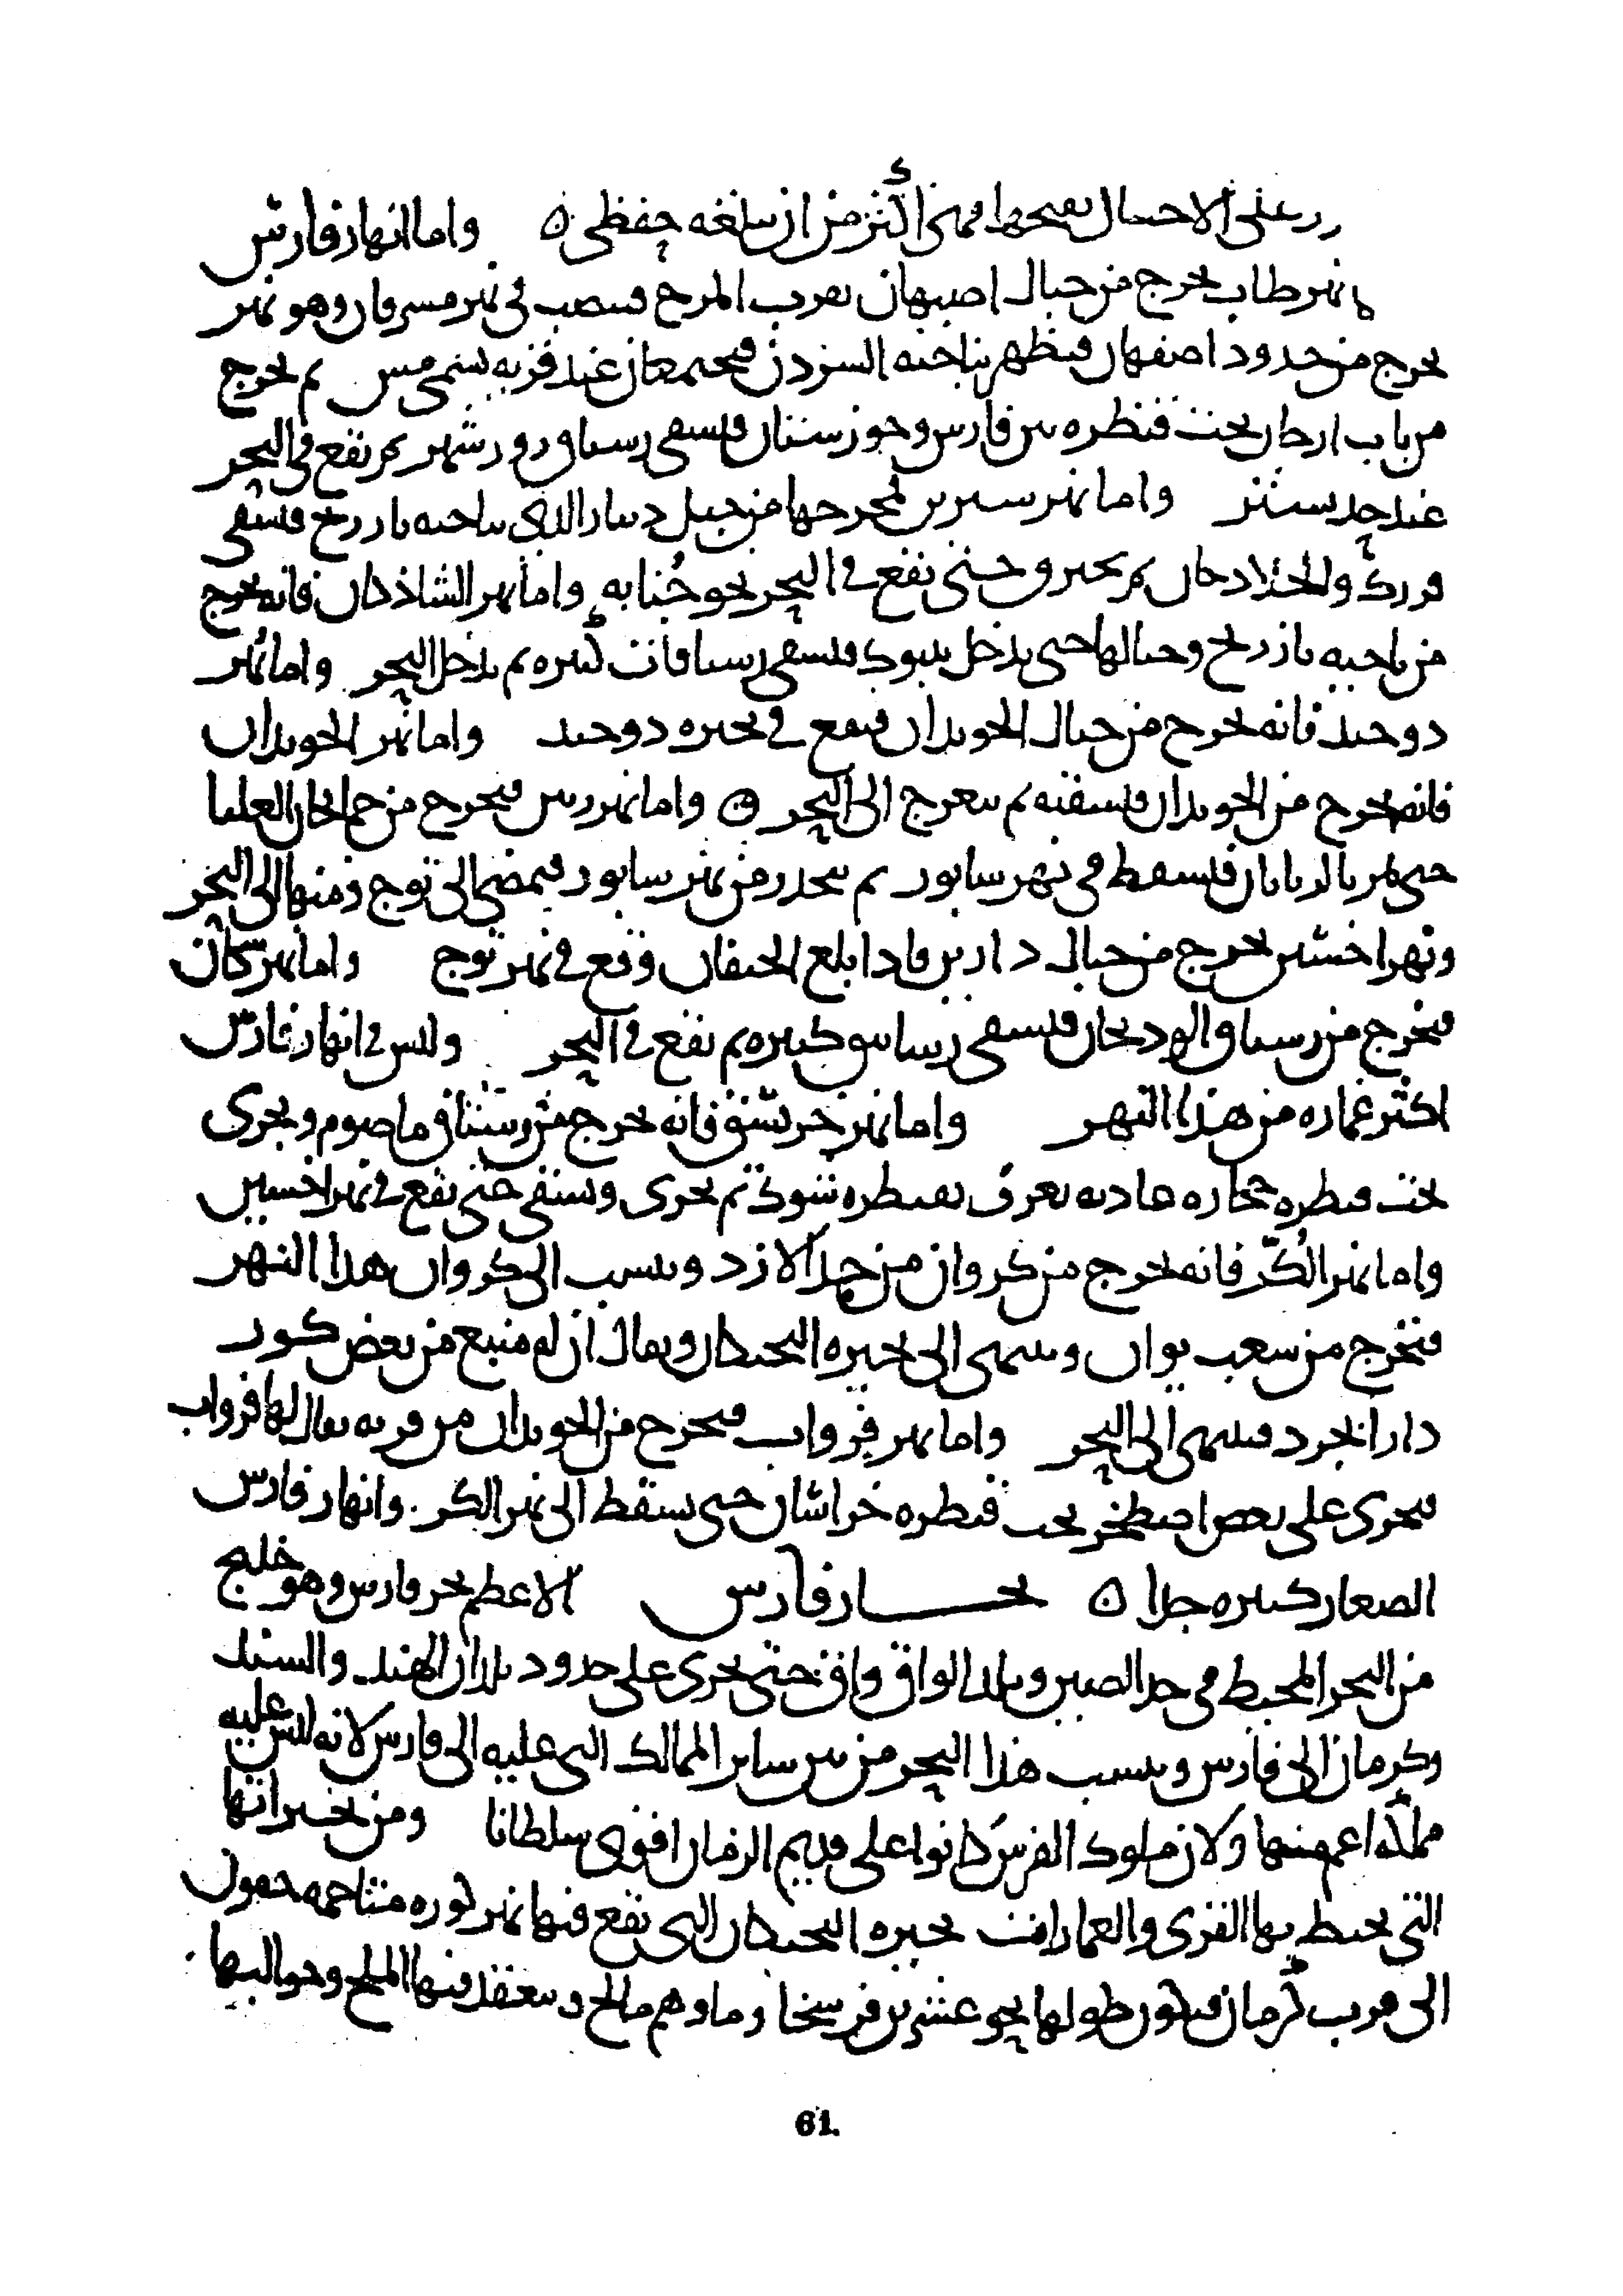 على الاجمال بفتحها فهى اكثر من ان يبلغه حفظى ن واما انهار فارس
نهر طاب يخرج من جبال اصبهان بقرب المرج فيصب فى نهر مسرقان وهو نهر
يخرج من حدود اصفهان فيظهر بناحيه السردن فيجتمعان عند قريه تسمى مسن ثم يخرج
من باب ارجان تحت قنطره بين فارس وخوزستان فيسقى رستاق رورشهر ثم يقع فى البحر
عند حد ستنز واما نهر سيرين فمخرجها من جبل دينار الذى بناحيه بازرنج فيسقى
فررك والجلادجان ثم يجر وحتى يقع فى البحر نحو جنابه واما نهر الشاذكان فانه يخرج
من ناحيه بازرنج وجبالها حتى يدخل نببوك فيسقى رستاقات كثيره ثم يدخل البحر واما نهر
دوجيد فانه يخرج من جبال الخوبذان فيقع فى بحيره دوجيد واما نهر الخوبذان
فانه يخرج من الخوبذان فيسقيه ثم يتعرج الى البحر ن واما نهر رس فيخرج من خمايجان العليا
حتى يمر بالرباباں فيسقط فى نهر سابور ثم ينحدر من نهر سابور فيمضى الى توج ومنها الى البحر
ونهر اخشين يخرج من جبال دادين فاذا بلغ الجنقان وقع فى نهر توج واما نهر سكان
فيخرج من رستاق الرودنجان فيسقى رساتيق كثيره ثم يقع فى البحر وليس فى انهار فارس
اكثر عماره من هذا النهر واما نهر خرشيق فانه يخرج من رستاق ماصرم ويجرى
تحت قنطره حجاره عاديه تعرف بقنطره سبوك ثم يجرى ويسقى حتى يقع فى نهر اخسين
واما نهر الكر فانه يخرج من كروان من حد الازد وينسب الى كروان هذا النهر
فيخرج من شعب بوان وينتهى الى بحيره البختكان ويقال ان له منبع من بعض كور
دارابجرد فينتهى الى البحر واما نهر فرواب فيخرج من الجوبذان من قريه يقال لها فرواب
فيجرى على بعض اصطخر تحت قنطره خراسان حتى يسقط الى نهر الكر وانهار فارس
الصغار كثيره جدا ن بحار فارس الاعظم بحر فارس وهو خليج
من البحر المحيط فى حد الصين وبلد الواق واق حتى يجرى على حدود بلدان الهند والسند
وكرمان الى فارس وينسب هذا البحر من بين ساير الممالك التى عليه الى فارس لانه ليس عليه
مملكه اعم منها ولان ملوك الفرس كانوا على قديم الزمان اقوى سلطانا ومن بحيراتها
التى يحيط بها القرى والعمارات بحيره البختكان التى يقع فيها نهر كوره متاخمه
الى قرب كرمان فيكون طولها نحو عشرين فرسخا وماوهم مالح وينعقد فيها الملح وحواليها
61.